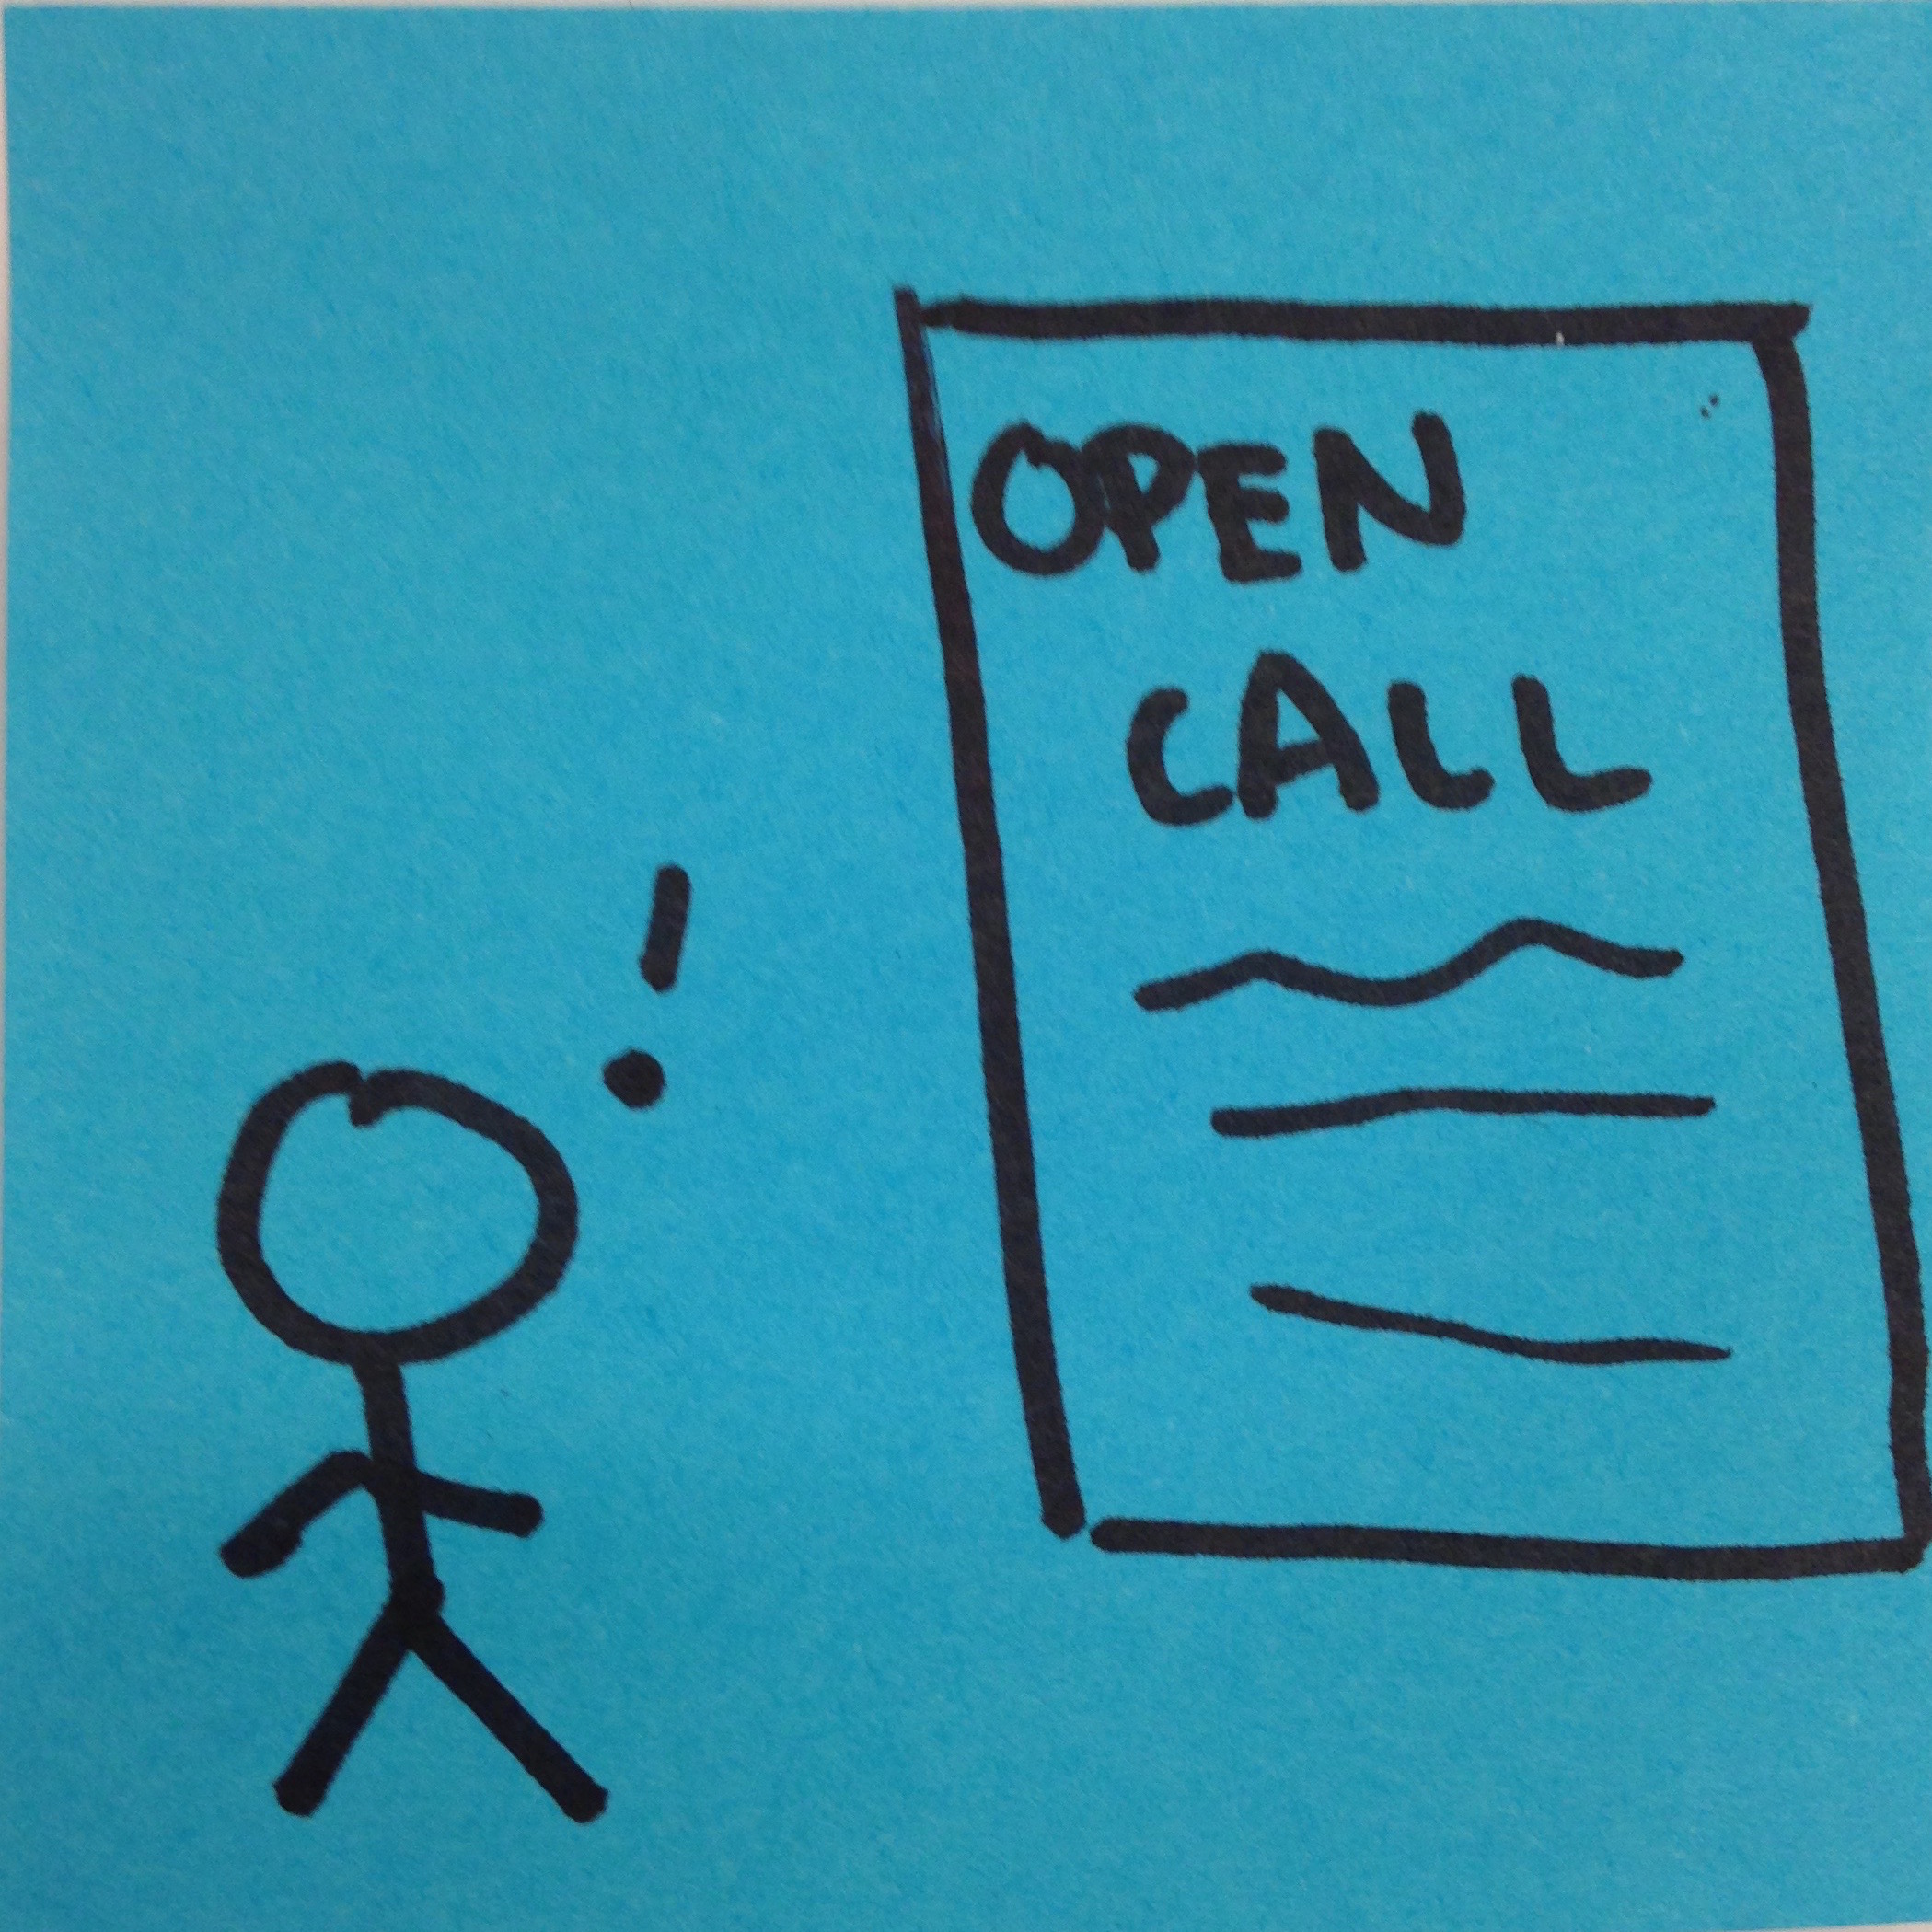 OPEN
CALL
!